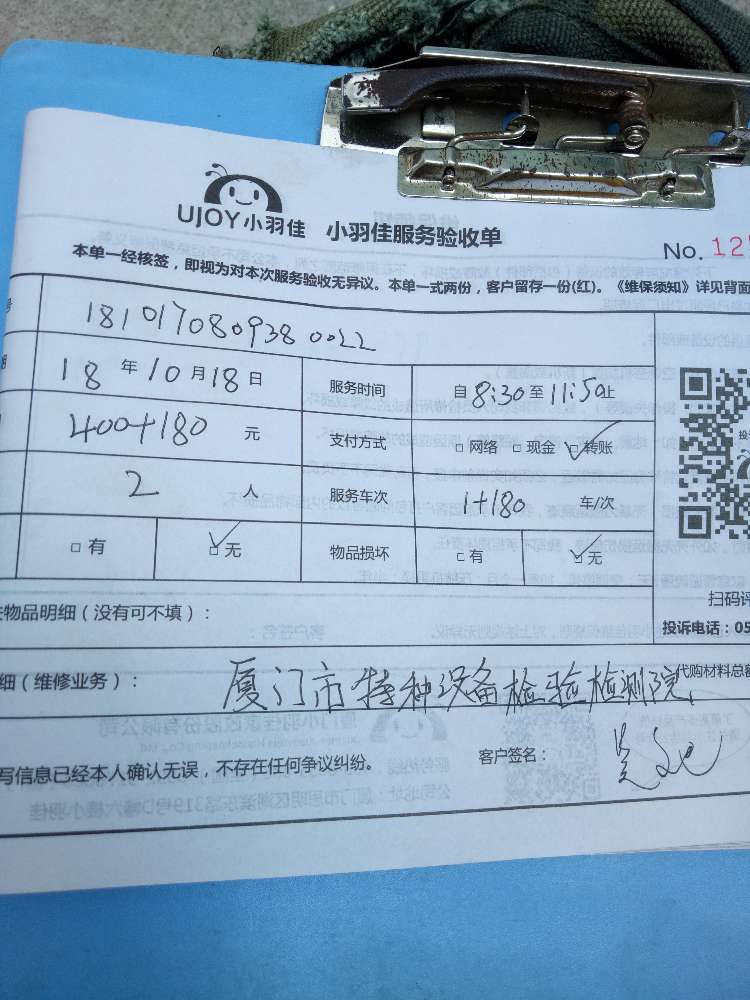 UJOY小羽佳 小羽佳服务验收单
No. 12
本单一经核签，即视为对本次服务验收无异议。本单一式两份，客户留存一份(红)。《维保须知》详见背面
号 1810170809380022
18年10月18日 服务时间 自8:30至11:50止
400+180 元 支付方式 □网络 □现金 ☑转账
2 人 服务车次 1+180 车/次
□有 ☑无 物品损坏 □有 ☑无
扫码评
物品明细（没有可不填）：
投诉电话：05
细（维修业务）： 厦门市特种设备检验检测院 代购材料总额
写信息已经本人确认无误，不存在任何争议纠纷。 客户签名：